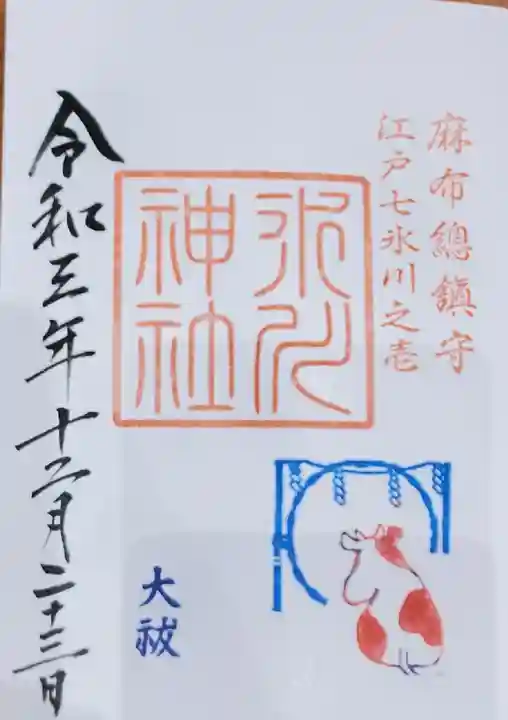 麻布總鎮守
江戸七氷川之壱
氷川
神社
大祓
令和三年十二月二十三日